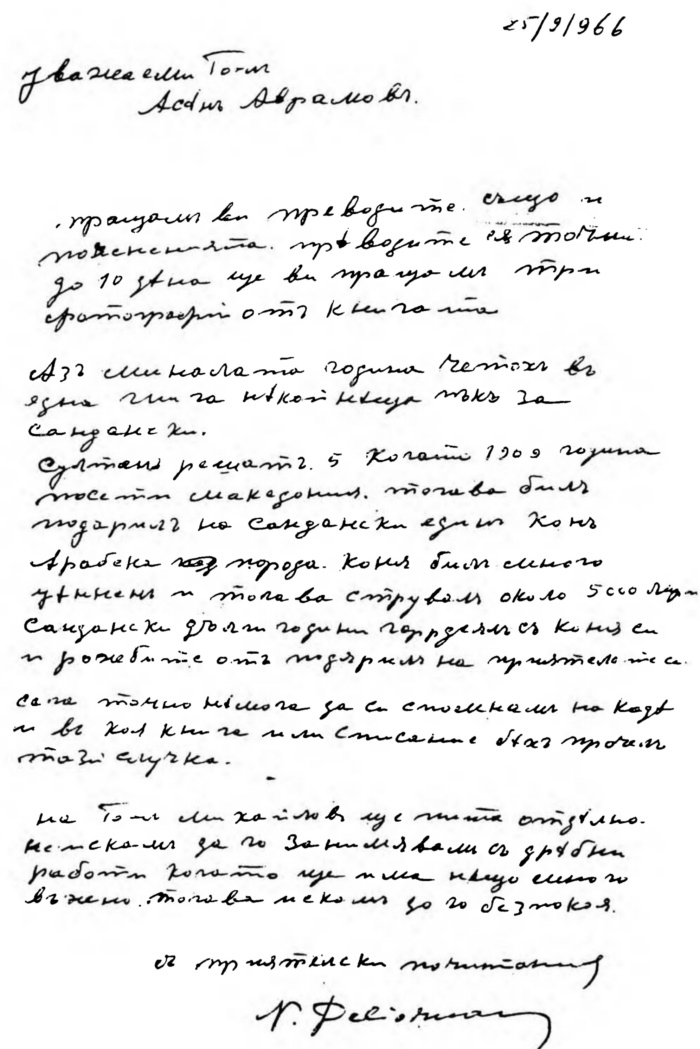 25/9/966
Уважаеми Г-нъ
Асѣнъ Аврамовъ.
пращамъ ви преводите. също и
поясненията. прѣводите ся точни.
до 10 дѣна ще ви пращамъ три
фотографии отъ книгата
Азъ миналата година четохъ въ
една книга нѣкой нѣща пъкъ за
Сандански.
Султанъ решатъ. 5 Когато 1909 година
посети македония. тогава билъ
подарилъ на Сандански единъ Конъ
Арабска порода. Коня билъ много
цѣненъ и тогава струвалъ около 5000 лири
Сандански дълги години гордеялъ съ коня си
и рожбите отъ подярилъ на приятелите си.
сега точно немога да си спомнамъ на кадѣ
и въ коя книга или списание бѣхъ прочелъ
тази случка.
на Г-нъ Михайловъ ще пиша отдѣлно.
неискамъ да го занимявамъ съ дрѣбни
работи когато ще има нѣщо много
въжно. тогава искамъ до го безпокоя.
съ приятелски почитания
N.